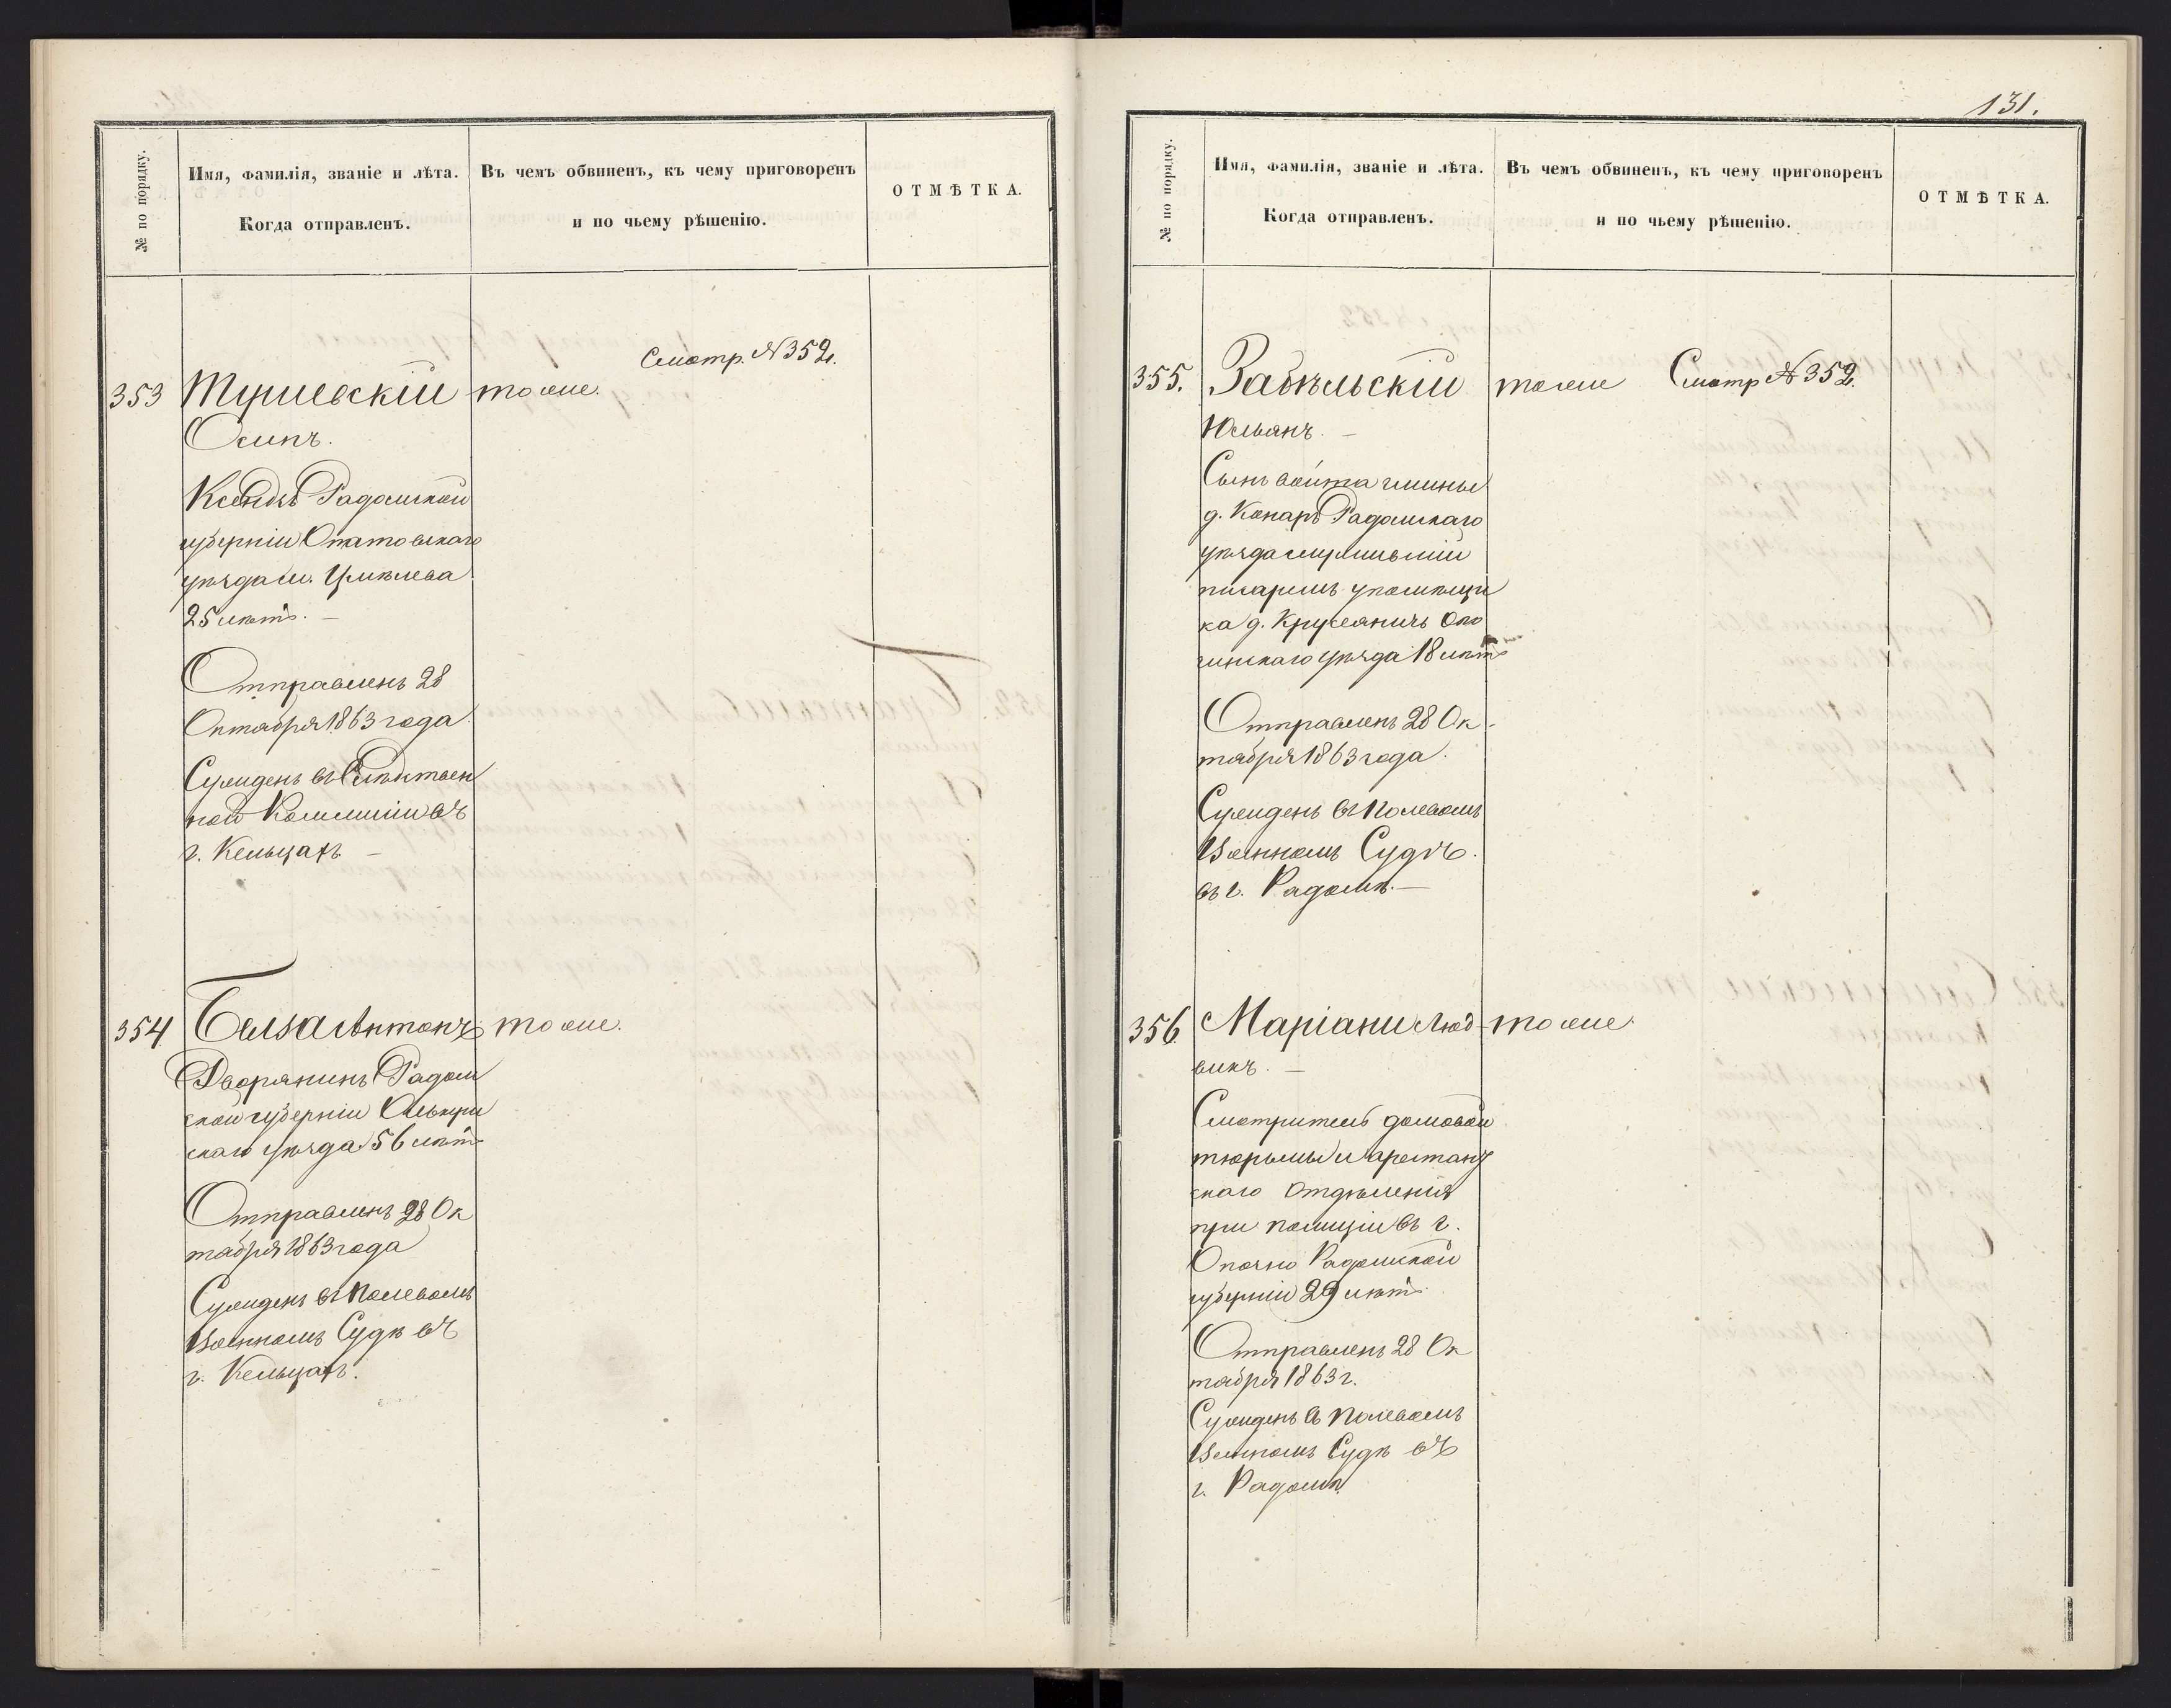 № по порядку.
Имя, фамилія, званіе и лѣта.
Когда отправленъ.
Въ чемъ обвиненъ, къ чему приговоренъ
и по чьему рѣшенію.
ОТМѢТКА.
Смотр. № 352.
353
тоже.
Осипъ.
Ксендзъ Радомской
губерніи Опатовскаго
уѣзда м. Цмѣлева
25 лѣтъ. —
Отправленъ 28
Октября 1863 года.
Суждена въ Слѣдствен
ной Коммисіи въ
г. Кельцахъ —
354
Белза Антонъ тоже.
Дворянинъ Радом
ской губерніи Олькуш
скаго уѣзда 56 лѣтъ
Отправленъ 28 Ок
тября 1863 года
Сужденъ въ Полевомъ
Военномъ Судѣ въ
г. Кельцахъ.
131.
№ по порядку.
Имя, фамилія, званіе и лѣта.
Когда отправленъ.
Въ чемъ обвиненъ, къ чему приговоренъ
и по чьему рѣшенію.
ОТМѢТКА.
355. Забѣльскій тоже Смотр № 352.
Юльянъ. —
Сынъ войта гмины
д. Конаръ Радомскаго
уѣзда служившій
писаремъ у помѣщи
ка д. Опо
чинскаго уѣзда 18 лѣтъ
Отправленъ 28 Ок
тября 1863 года.
Сужденъ въ Полевомъ
Военномъ Судѣ
въ г. Радомѣ. —
356 Маріани Люд тоже.
викъ. —
Смотритель домовой
тюрьмы и арестант
скаго отдѣленія
при полиціи въ г.
Опочно Радомской
губерніи 29 лѣтъ.
Отправленъ 28 Ок
тября 1863 г.
Сужденъ въ Полевомъ
Военномъ Судѣ въ
г. Радомѣ